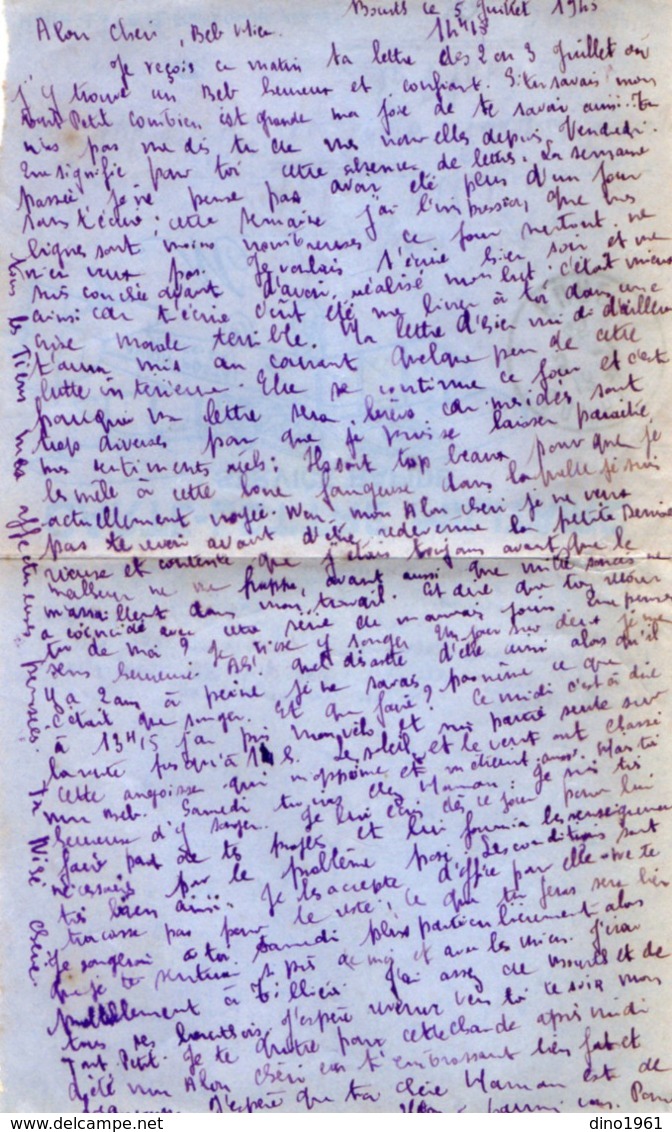 Bourds ce 5 Juillet 1943
14h15
A lon Cheri, Beb Mien.
Je reçois ce matin ta lettre des 2 et 3 Juillet où
j'y trouve un Beb heureux et confiant. Si tu savais mon
Tout Petit combien est grande ma joie de te savoir ainsi. Tu
n'as pas me dis tu eu mes nouvelles depuis Vendredi.
signifie pour toi cette absence de lettres. La semaine
passée, je ne pense pas avoir été plus d'un jour
sans t'écrire; cette semaine j'ai l'impression que mes
lignes sont moins nombreuses ce jour surtout, ne
m'en veux pas. Je voulais t'écrire hier soir et me
suis couchée avant d'avoir réalisé mon but. C'était mieux
ainsi car t'écrire c'eût été me livrer à toi dans une
crise morale terrible. Ma lettre d'hier midi d'ailleurs
t'aura mis au courant quelque peu de cette
lutte intérieure. Elle se continue ce jour et c'est
pourquoi ma lettre sera brève car mes idées sont
trop diverses pour que je puisse laisser paraître
mes sentiments réels: Ils sont trop beaux pour que je
les mêle à cette boue fangeuse dans laquelle je suis
actuellement noyée. Non, mon Alon chéri je ne veux
pas te revoir avant d'être redevenue la petite Denise
rieuse et contente que j'étais toujours avant que le
malheur ne me frappe, avant aussi que mille soucis ne
m'assaillent dans mon travail. Et dire que ton retour
a coïncidé avec cette série de mauvais jours. Que penses
tu de moi? Je n'ose y songer. Un jour sur deux je me
sens heureuse. Ah! quel désastre d'être ainsi alors qu'il
y a 2 ans à peine je ne savais pas même ce que
c'était que songer. Et que faire? Ce midi c'est à dire
à 13H15 j'ai pris mon vélo et suis partie seule sur
la route jusqu'à 14 h. Le soleil et le vent ont chassé
cette angoisse qui m'opprime et m'étreint aussi.
mon Beb. Samedi tu vas chez Maman: Je suis si
heureuse d'y songer. Je lui écris dès ce jour pour lui
faire part de tes projets et lui fournir les renseignements
nécessaires par le problème posé. Les conditions sont
très bien ainsi. Je les accepte d'office par elle. Ne te
tracasse pas pour le reste; ce que tu feras sera bien
Je songerai à toi Samedi plus particulièrement alors
que je te sentirai si près de moi et avec les miens. J'irai
probablement à Tillières. J'ai assez de Bourds et de
tous ses . J'espère revenir vers toi ce soir mon
Tout Petit. Je te quitte pour cette chaude après midi
d'été mon Alon chéri en t'embrassant bien fort et
J'espère que ta chère Maman est de
parmi vous.
tous les Tiens mes affectueuses pensées. Ta Nise chère.
dino1961